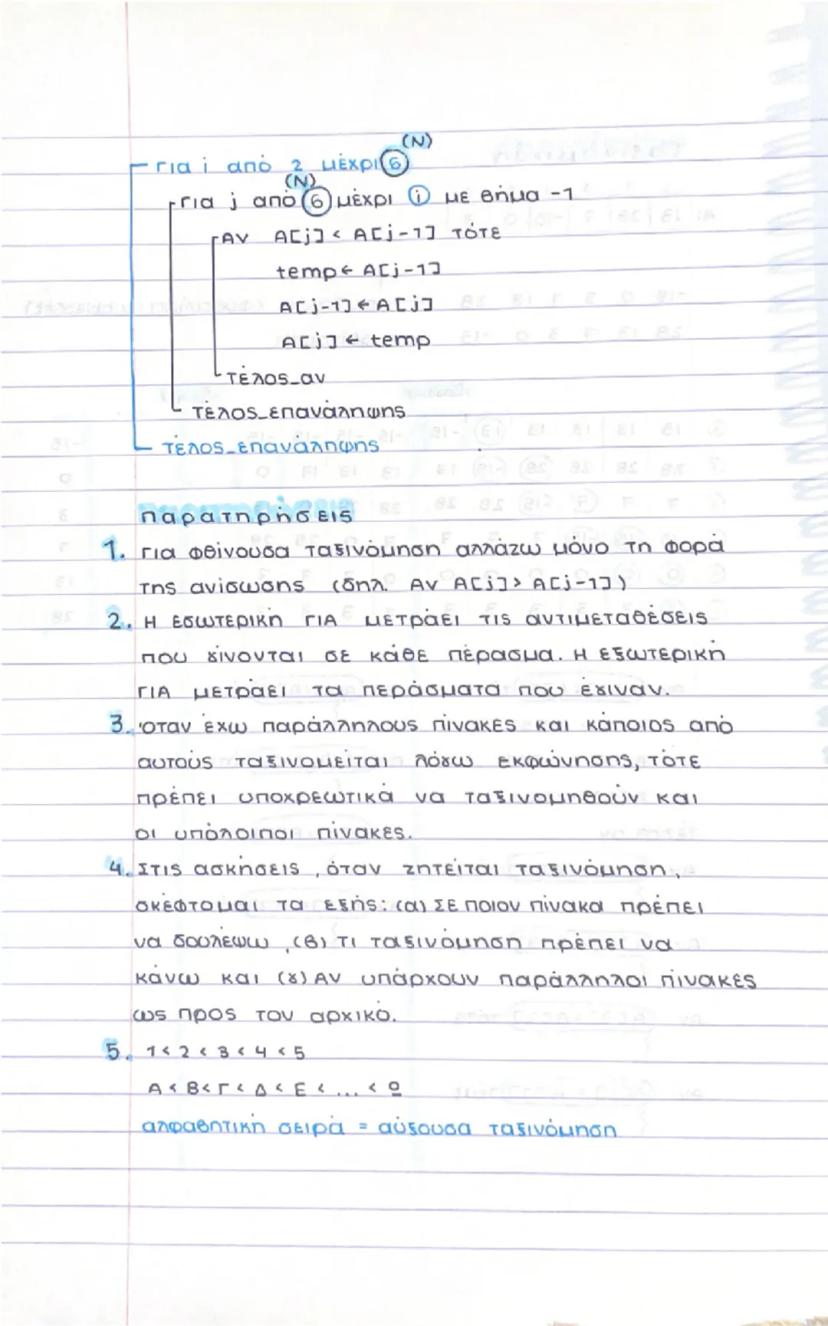 (Ν)
Για i από 2 μέχρι 6
(Ν)
Για j από 6 μέχρι i με βήμα -1
Αν A[j] < A[j-1] τότε
temp ← A[j-1]
A[j-1] ← A[j]
A[j] ← temp
Τέλος_αν
Τέλος_επανάληψης
Τέλος_επανάληψης
Παρατηρήσεις
1. Για φθίνουσα ταξινόμηση αλλάζω μόνο τη φορά
της ανίσωσης (δηλ. Αν A[j] > A[j-1])
2. Η εσωτερική ΓΙΑ μετράει τις αντιμεταθέσεις
που γίνονται σε κάθε πέρασμα. Η εξωτερική
ΓΙΑ μετράει τα περάσματα που έγιναν.
3. Όταν έχω παράλληλους πίνακες και κάποιος από
αυτούς ταξινομείται λόγω εκφώνησης, τότε
πρέπει υποχρεωτικά να ταξινομηθούν και
οι υπόλοιποι πίνακες.
4. Στις ασκήσεις, όταν ζητείται ταξινόμηση,
σκέφτομαι τα εξής: (α) Σε ποιον πίνακα πρέπει
να δουλέψω, (β) Τι ταξινόμηση πρέπει να
κάνω και (γ) Αν υπάρχουν παράλληλοι πίνακες
ως προς τον αρχικό.
5. 1 < 2 < 3 < 4 < 5
Α < Β < Γ < Δ < Ε < ... < Ω
αλφαβητική σειρά = αύξουσα ταξινόμηση